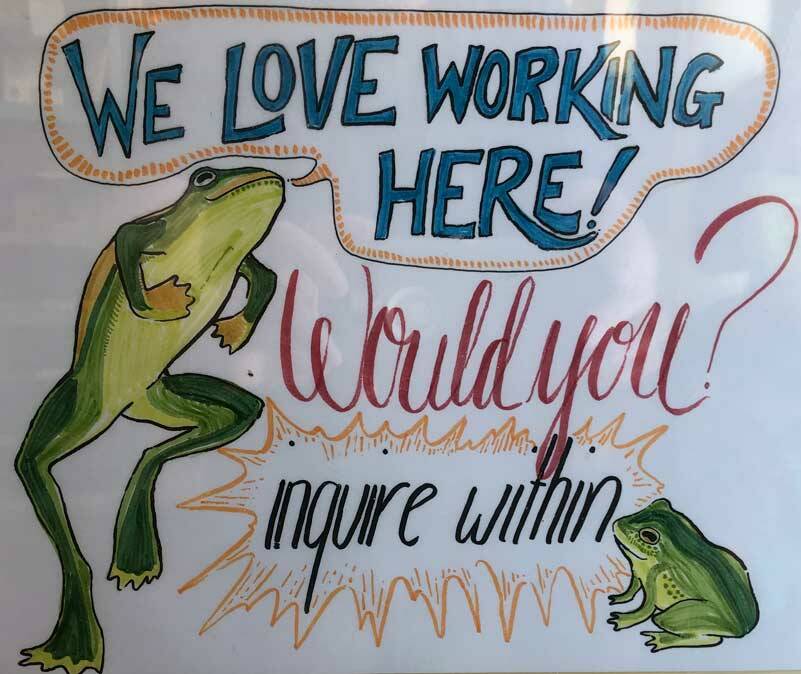 WE LOVE WORKING
HERE!
Would you?
inquire within